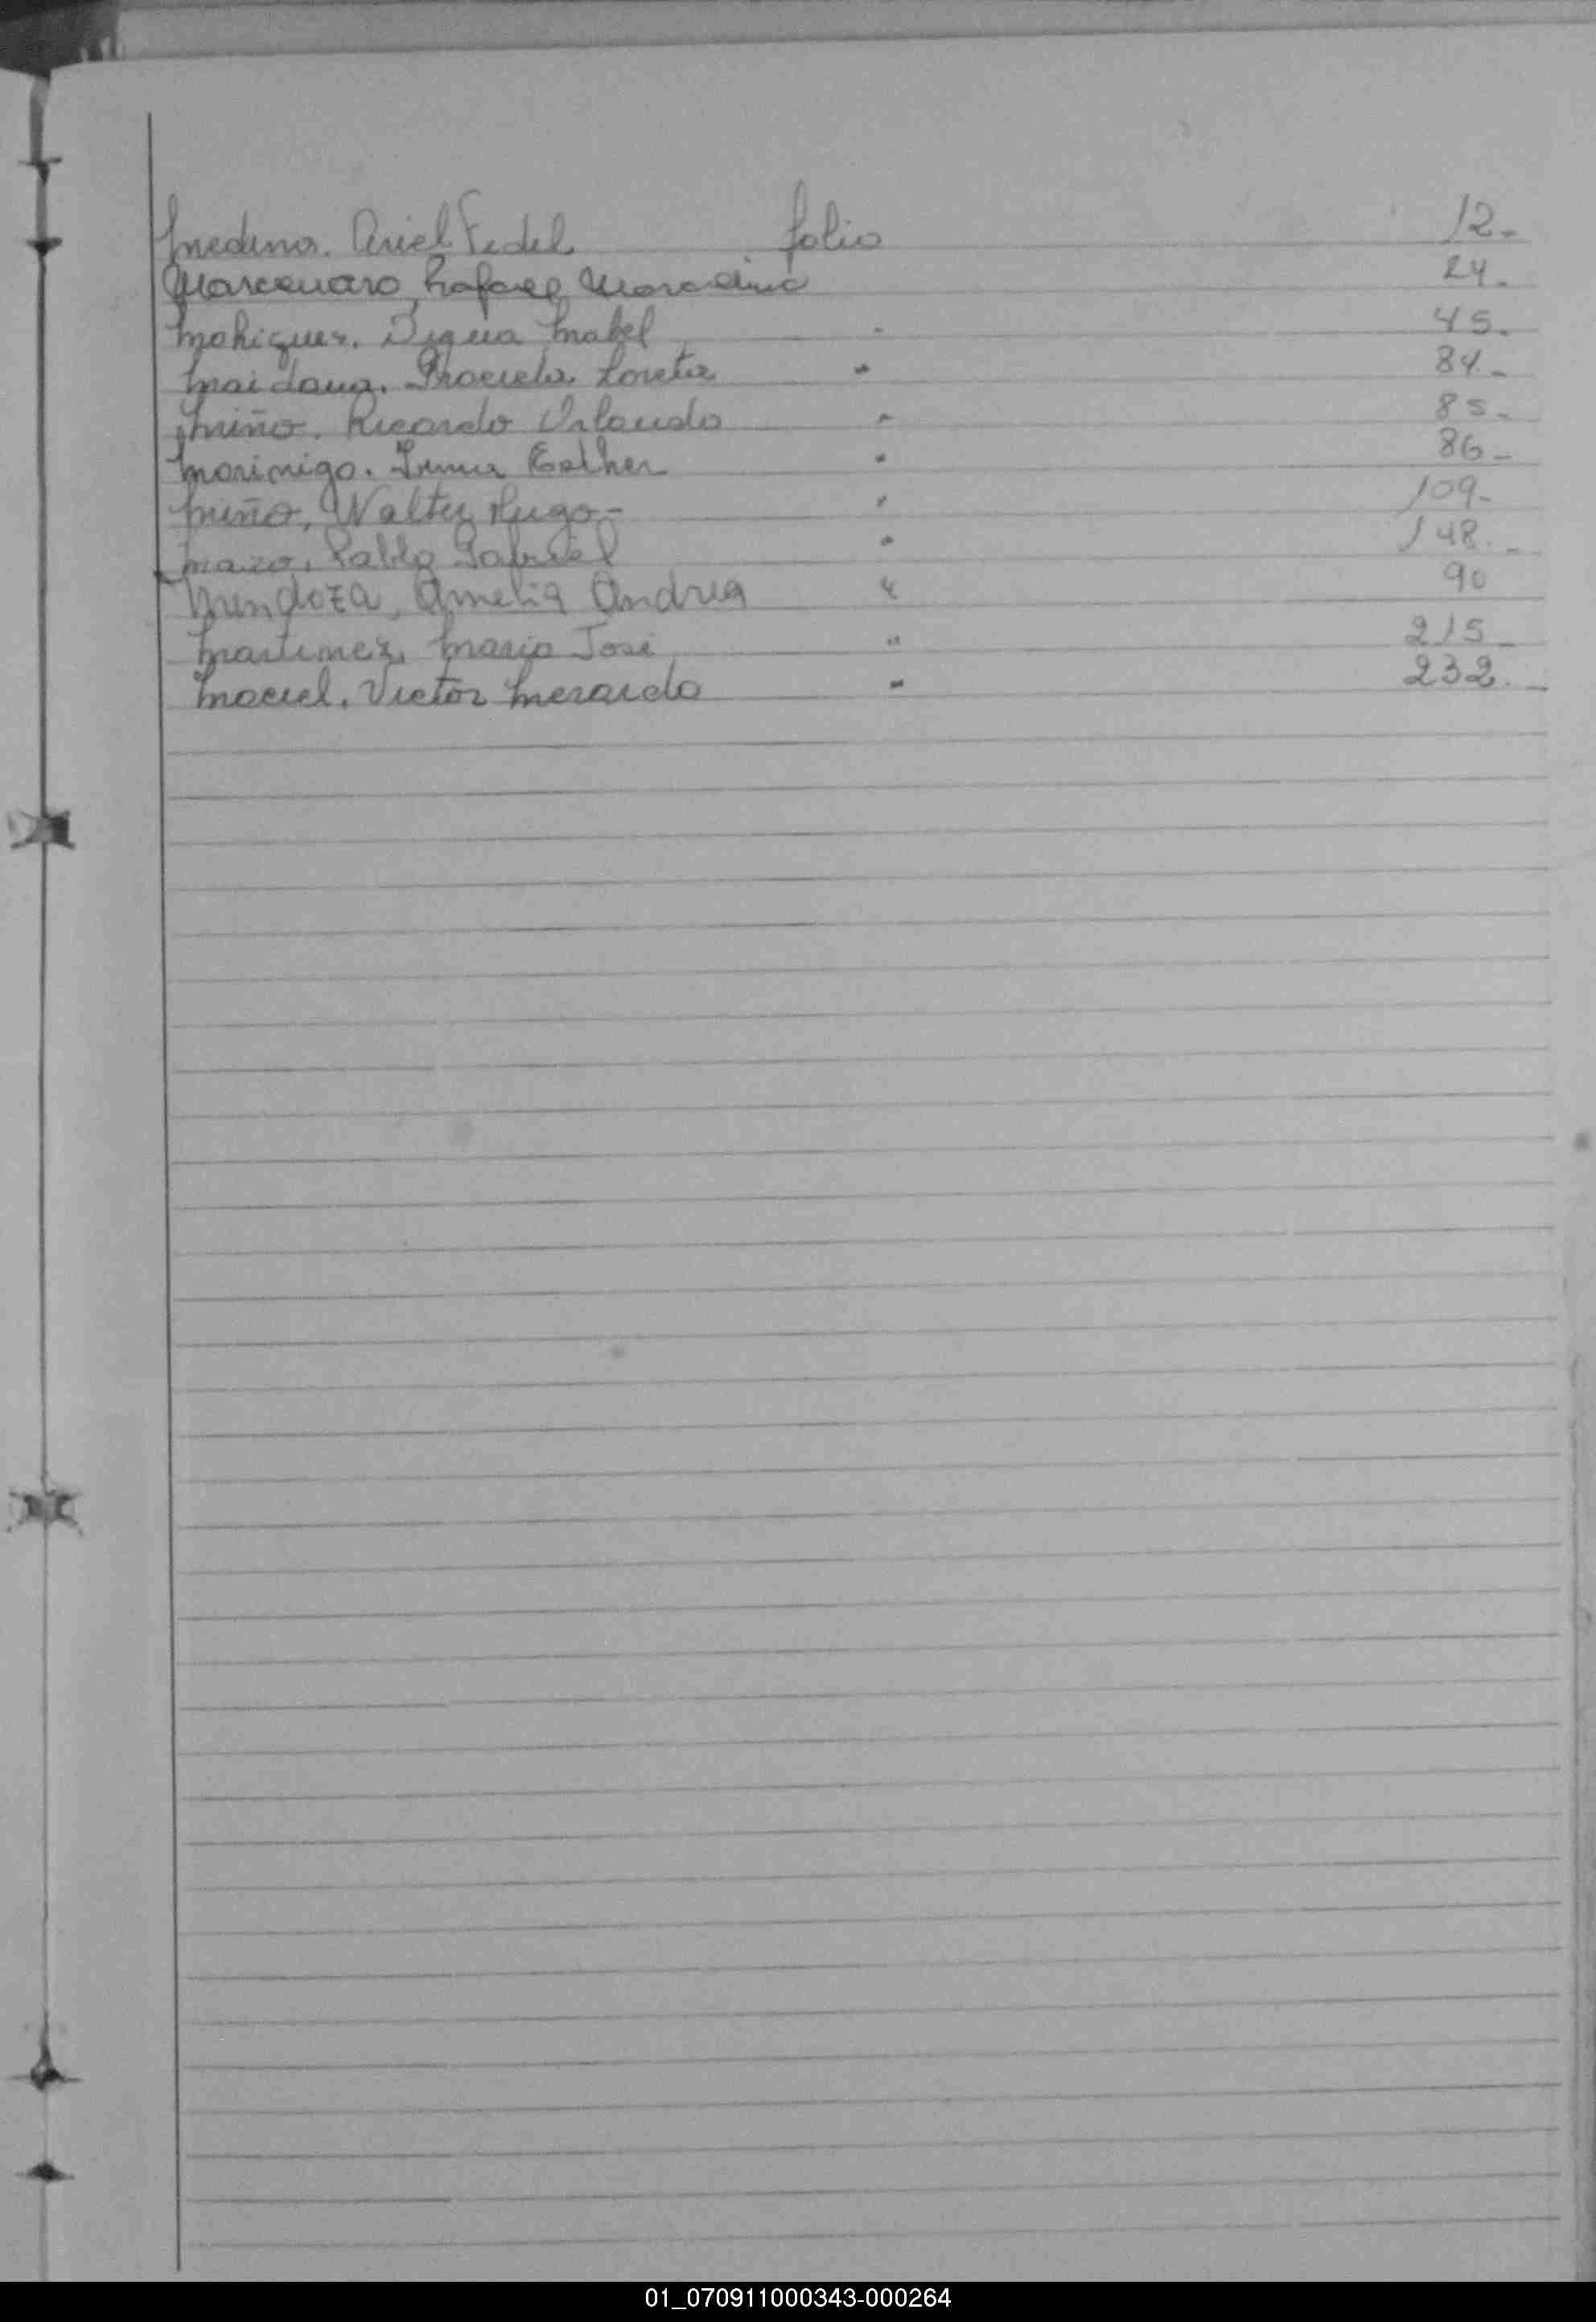 Medina. Ariel Fidel folio 12.-
Marcenaro, Rafael Marcelino 24.-
Mohiguer. Digna Mabel " 45.
Maidana. Graciela Loreta " 84.-
Miño. Ricardo Orlando " 85.-
Morinigo. Irma Esther " 86-
Miño, Walter Hugo- " 109-
Mazo, Pablo Gabriel " 148.-
Mendoza, Amelia Andrea " 90
Martinez, Maria José " 215-
Maciel, Victor Merardo " 232.-
01_070911000343-000264